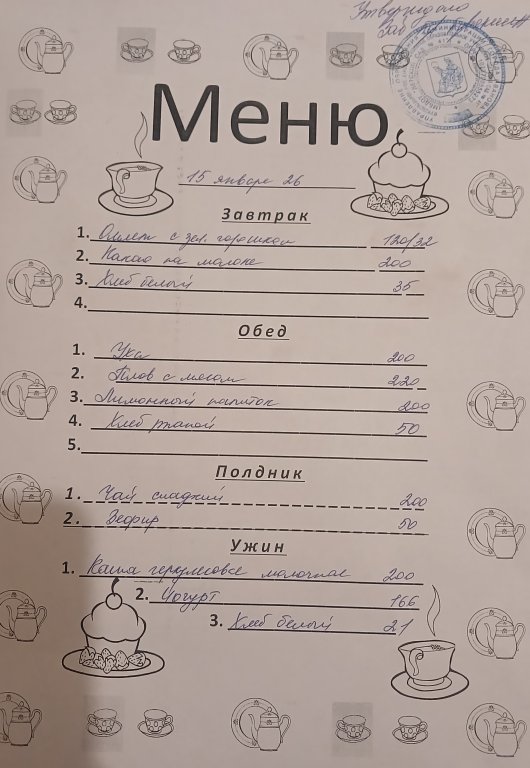 Утверждаю
Зав
Меню
15 января 26
Завтрак
1. Омлет с зел. горошком 120/32
2. Какао на молоке 200
3. Хлеб белый 35
4.
Обед
1. Уха 200
2. Плов с мясом 220
3. Лимонный напиток 200
4. Хлеб ржаной 50
5.
Полдник
1. Чай сладкий 200
2. Зефир 50
Ужин
1. Каша геркулесовая молочная 200
2. Йогурт 166
3. Хлеб белый 21